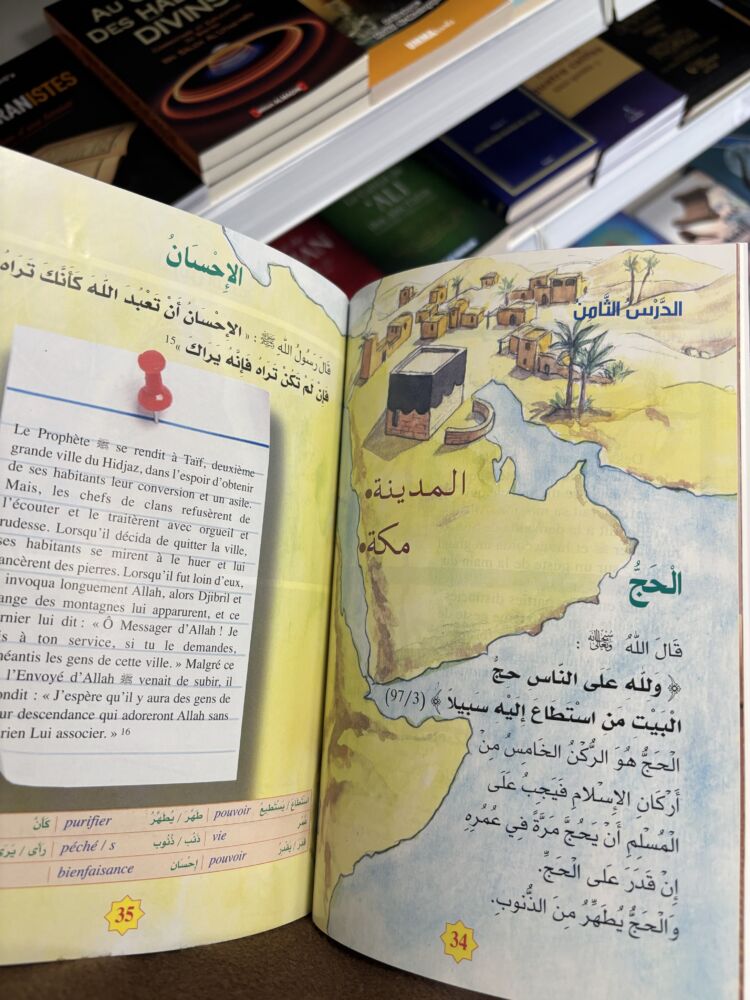 AU
DES HA
DIVINS
ANISTES
'ALI
الدَّرْسُ الثَّامِن
المدينة
مكة
الْحَجُّ
قَالَ اللهُ :
﴿ وَلله عَلَى النَّاس حجُّ
الْبَيْت مَن اسْتَطَاعَ إِلَيْه سَبِيلاً ﴾ (97/3)
الْحَجُّ هُوَ الرُّكْنُ الْخَامِسُ مِنْ
أَرْكَانِ الإِسْلَامِ فَيَجِبُ عَلَى
الْمُسْلِمِ أَنْ يَحُجَّ مَرَّةً فِي عُمُرِهِ
إِنْ قَدَرَ عَلَى الْحَجِّ.
وَالْحَجُّ يُطَهِّرُ مِنَ الذُّنُوبِ.
34
الإِحْسَانُ
قَالَ رَسُولُ اللهِ ﷺ : « الإِحْسَانُ أَنْ تَعْبُدَ اللهَ كَأَنَّكَ تَرَاهُ
فَإِنْ لَمْ تَكُنْ تَرَاهُ فَإِنَّهُ يَرَاكَ »15
Le Prophète ﷺ se rendit à Taïf, deuxième
grande ville du Hidjaz, dans l'espoir d'obtenir
de ses habitants leur conversion et un asile.
Mais, les chefs de clans refusèrent de
l'écouter et le traitèrent avec orgueil et
rudesse. Lorsqu'il décida de quitter la ville,
ses habitants se mirent à le huer et lui
ancèrent des pierres. Lorsqu'il fut loin d'eux,
invoqua longuement Allah, alors Djibril et
ange des montagnes lui apparurent, et ce
rnier lui dit : « Ô Messager d'Allah ! Je
is à ton service, si tu le demandes,
néantis les gens de cette ville. » Malgré ce
l'Envoyé d'Allah ﷺ venait de subir, il
ondit : « J'espère qu'il y aura des gens de
ur descendance qui adoreront Allah sans
rien Lui associer. » 16
اسْتَطَاعَ / يَسْتَطِيعُ pouvoir طَهَّرَ / يُطَهِّرُ purifier كَأَنَّ
عُمُر vie ذَنْب / ذُنُوب péché / s رَأَى / يَرَى
قَدَرَ / يَقْدِرُ pouvoir إِحْسَان bienfaisance
35